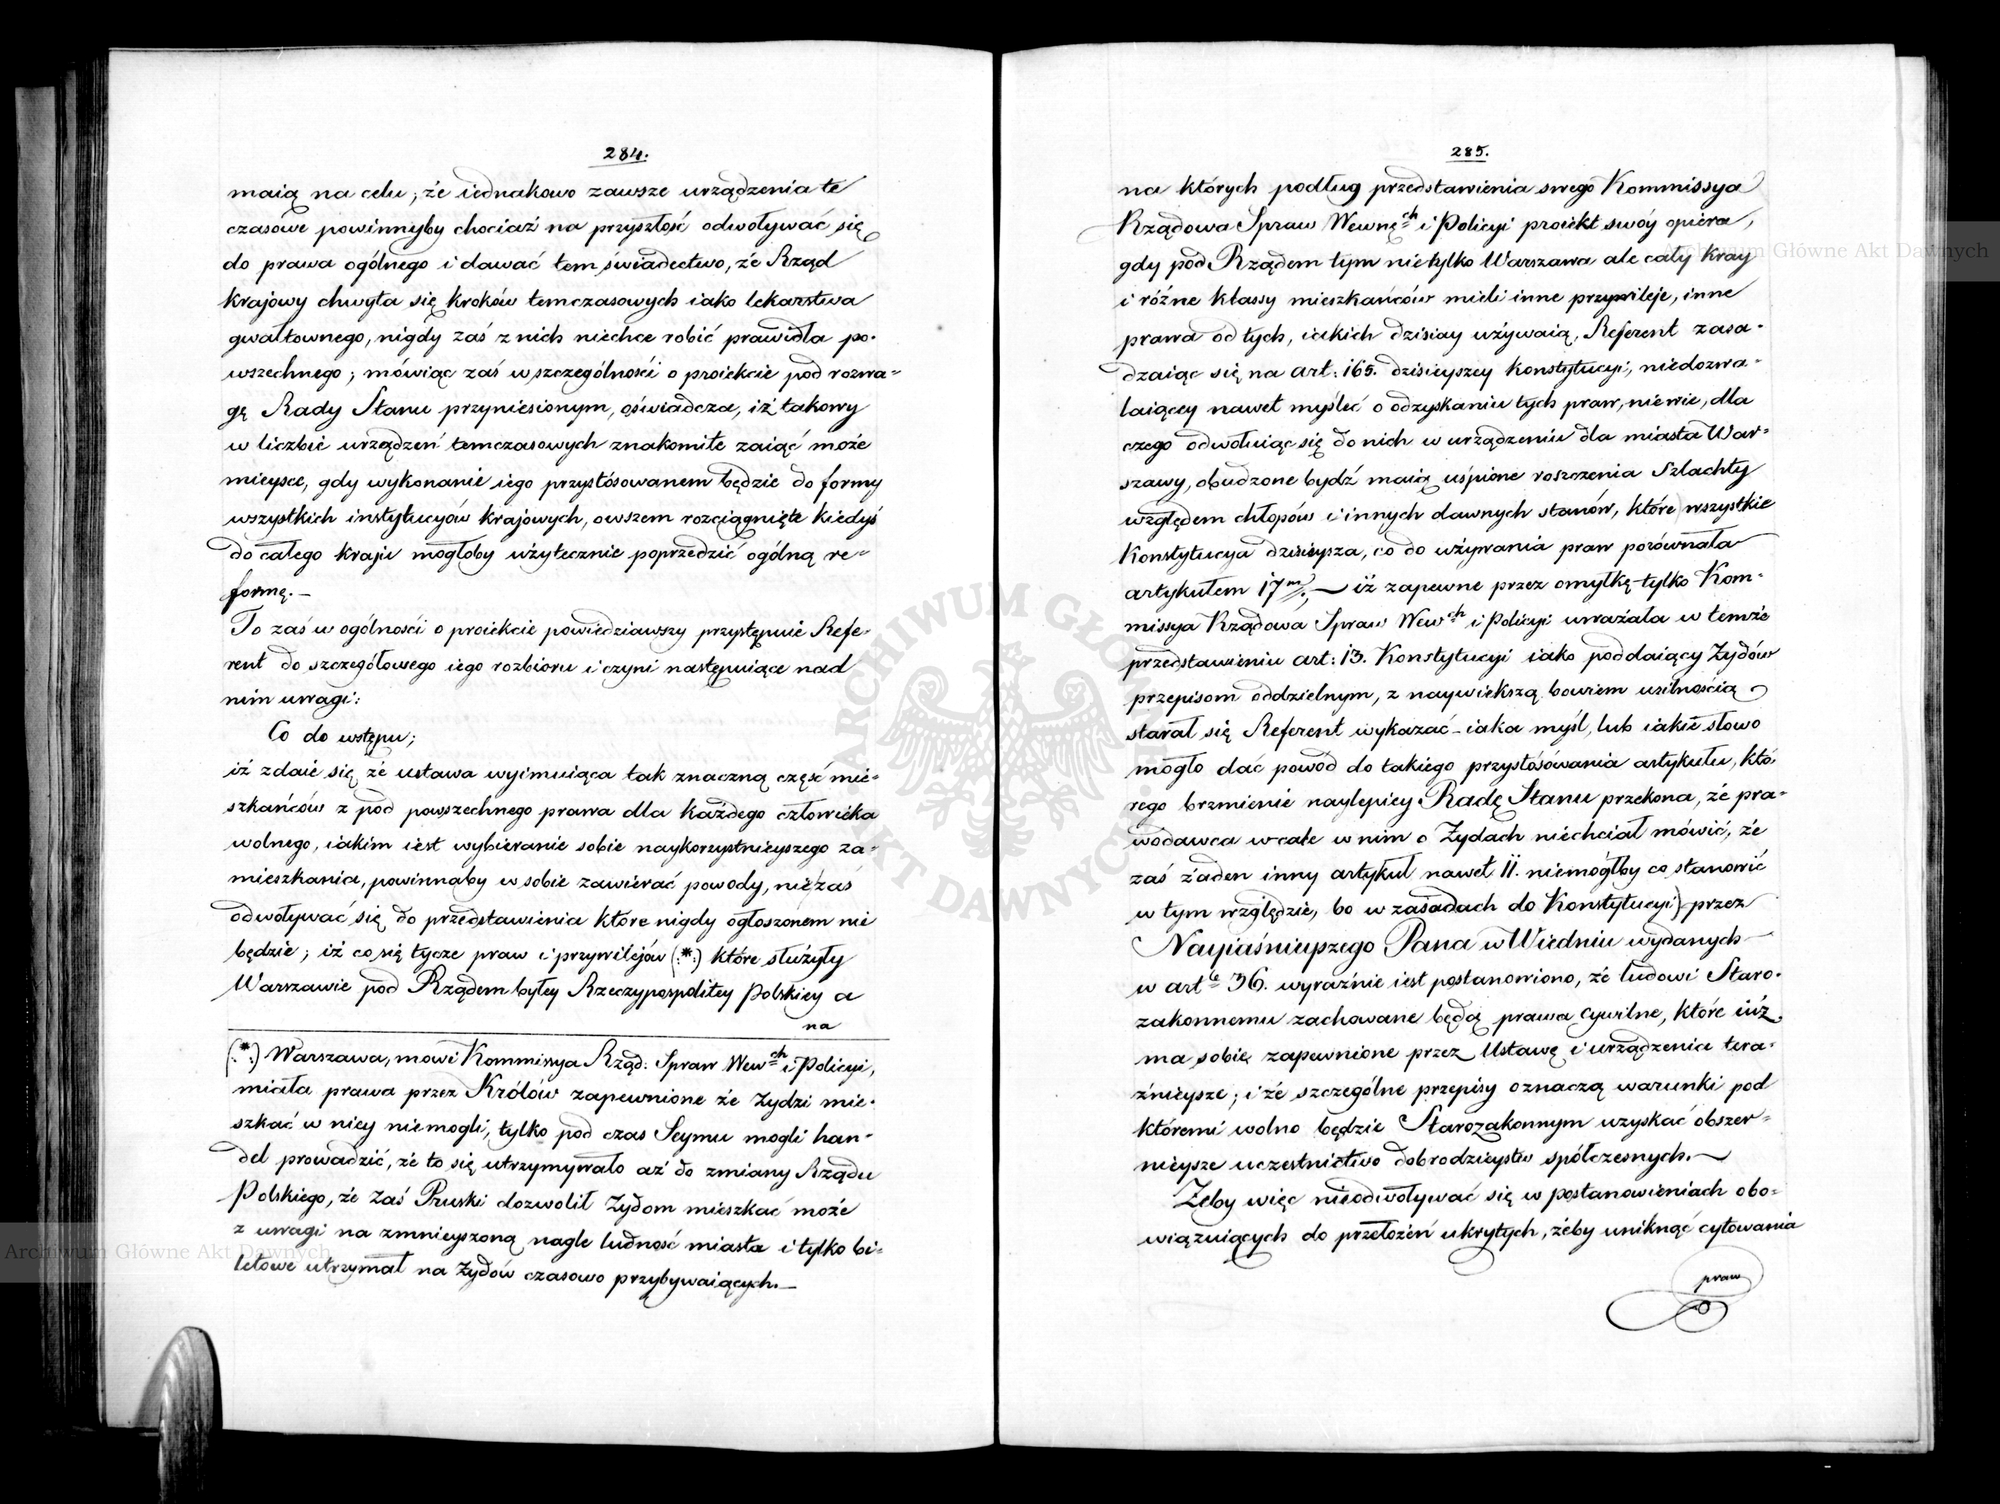 284.
maią na celu; że iednakowo zawsze urządzenia te
czasowe powinnyby chociaż na przyszłość odwoływać się
do prawa ogólnego i dawać tem świadectwo, że Rząd
krajowy chwyta się kroków temczasowych iako lekarstwa
gwałtownego, nigdy zaś z nich niechce robić prawidła po-
wszechnego; mówiąc zaś w szczególności o proiekcie pod rozwa-
gę Rady Stanu przyniesionym, oświadcza, iż takowy
w liczbie urządzeń temczasowych znakomite zaiąć może
mieysce, gdy wykonanie iego przystósowanem będzie do formy
wszystkich instytucyów krajowych, owszem rozciągnięte kiedyś
do całego kraju mogłoby użytecznie poprzedzić ogólną re-
formę.—
To zaś w ogólności o proiekcie powiedziawszy przystępuie Refe-
rent do szczegółowego iego rozbioru i czyni następuiące nad
nim uwagi:
Co do wstępu;
iż zdaie się że ustawa wyimuiąca tak znaczną część mie-
szkańców z pod powszechnego prawa dla każdego człowieka
wolnego, iakim iest wybieranie sobie naykorzystnieyszego za-
mieszkania, powinnaby w sobie zawierać powody, nie zaś
odwoływać się do przedstawienia które nigdy ogłoszonem nie
będzie; iż co się tycze praw i przywilejów (:*:) które służyły
Warszawie pod Rządem byłey Rzeczypospolitey Polskiey a
na
(:*:) Warszawa, mówi Kommissya Rząd: Spraw Wewch i Policyi,
miała prawa przez Królów zapewnione że Żydzi mie-
szkać w niey niemogli, tylko pod czas Seymu mogli han-
del prowadzić, że to się utrzymywało aż do zmiany Rządu
Polskiego, że zaś Pruski dozwolił Żydom mieszkać może
z uwagi na zmnieyszoną nagle ludność miasta i tylko bi-
letowe utrzymał na Żydów czasowo przybywaiących.—
285.
na których podług przedstawienia swego Kommissya
Rządowa Spraw Wewnęch i Policyi proiekt swóy opiera,
gdy pod Rządem tym nietylko Warszawa ale cały kray
i różne klassy mieszkańców mieli inne przywileje, inne
prawa od tych, iakich dzisiay używaią, Referent zasa-
dzaiąc się na art: 165. dzisieyszey Konstytucyi, niedozwa-
laiącey nawet myśleć o odzyskaniu tych praw, nie wie, dla
czego odwołuiąc się do nich w urządzeniu dla miasta War-
szawy, obudzone bydź maią uśpione roszczenia Szlachty
względem chłopów i innych dawnych stanów, które wszystkie
Konstytucya dzisieysza, co do używania praw porównała
artykułem 17m;— iż zapewne przez omyłkę tylko Kom-
missya Rządowa Spraw Wewch i Policyi uważała w temże
przedstawieniu art: 13. Konstytucyi iako poddaiący Żydów
przepisom oddzielnym, z naywiększą bowiem usilnością
starał się Referent wykazać – iaka myśl, lub iakie słowo
mogło dać powód do takiego przystósowania artykułu, któ-
rego brzmienie naylepiey Radę Stanu przekona, że pra-
wodawca wcale w nim o Żydach niechciał mówić, że
zaś żaden inny artykuł nawet 11. niemógłby co stanowić
w tym względzie, bo w zasadach do Konstytucyi przez
Nayiaśnieyszego Pana w Wiedniu wydanych
w artle 36. wyraźnie iest postanowiono, że ludowi Staro-
zakonnemu zachowane będą prawa cywilne, które iuż
ma sobie zapewnione przez Ustawę i urządzenia tera-
źnieysze; i że szczególne przepisy oznaczą warunki pod
któremi wolno będzie Starozakonnym uzyskać obszer-
nieysze uczestnictwo dobrodzieystw spółczesnych.—
Żeby więc nieodwoływać się w postanowieniach obo-
wiązuiących do przełożeń ukrytych, żeby uniknąć cytowania
praw